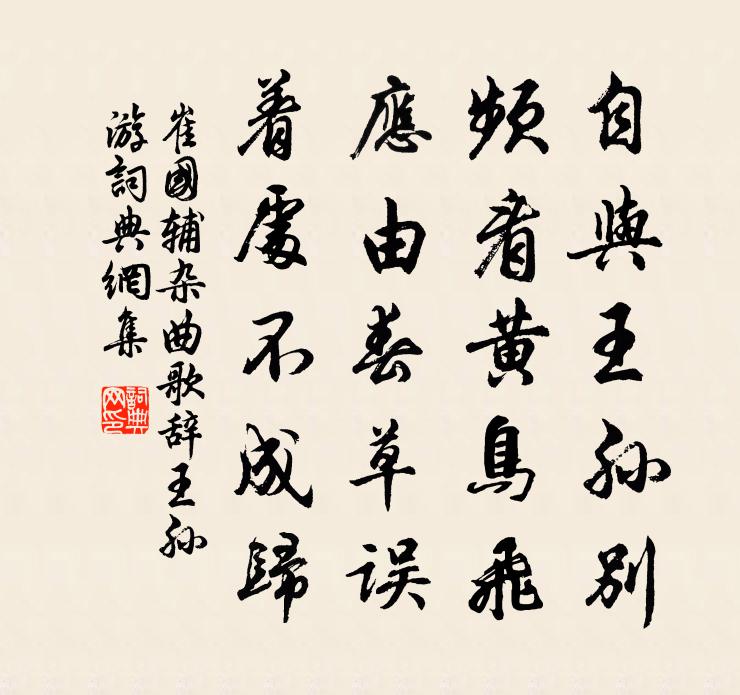 自與王孫别
頻看黄鳥飛
應由春草誤
着處不成歸
崔國辅杂曲歌辞王孙
游詞典網集
詞典网印